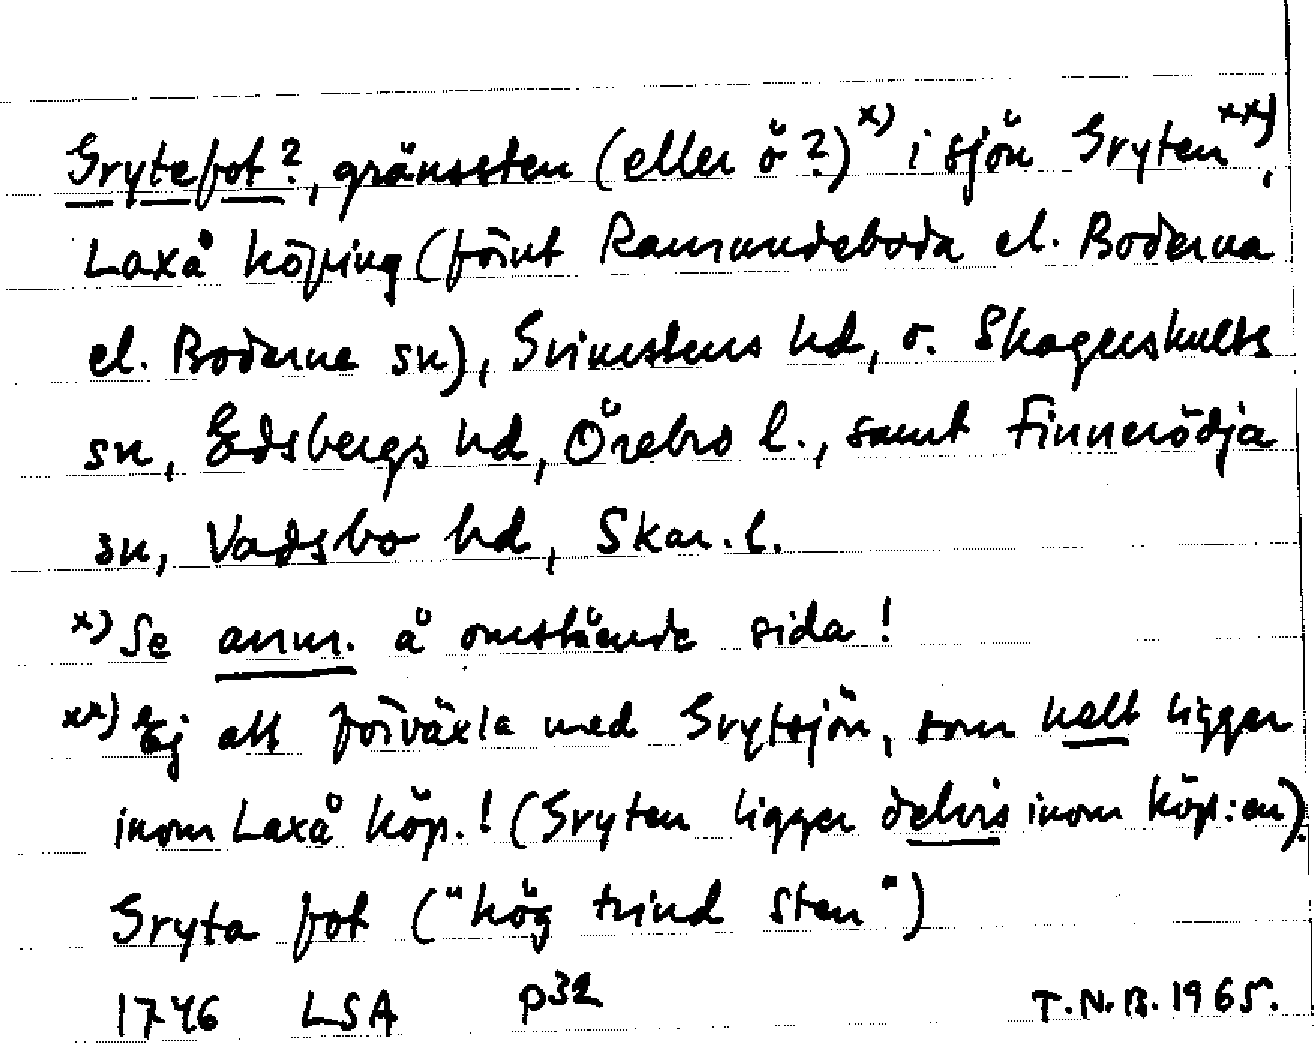 Grytefot?, gränssten (eller ö?)x) i sjön Gryten xx),
Laxå köping (förut Ramundeboda el. Bodarna
el. Boderne sn), Grimstens hd, o. Skagershults
sn, Edsbergs hd, Örebro l., samt Finnerödja
sn, Vadsbo hd, Skar. l.
x) Se anm. å omstående sida!
xx) Ej att förväxla med Grytsjön, som helt ligger
inom Laxå köp.! (Gryten ligger delvis inom köp:en).
Gryta fot ("hög trind sten")
1746 LSA P32 T.N.B. 1965.